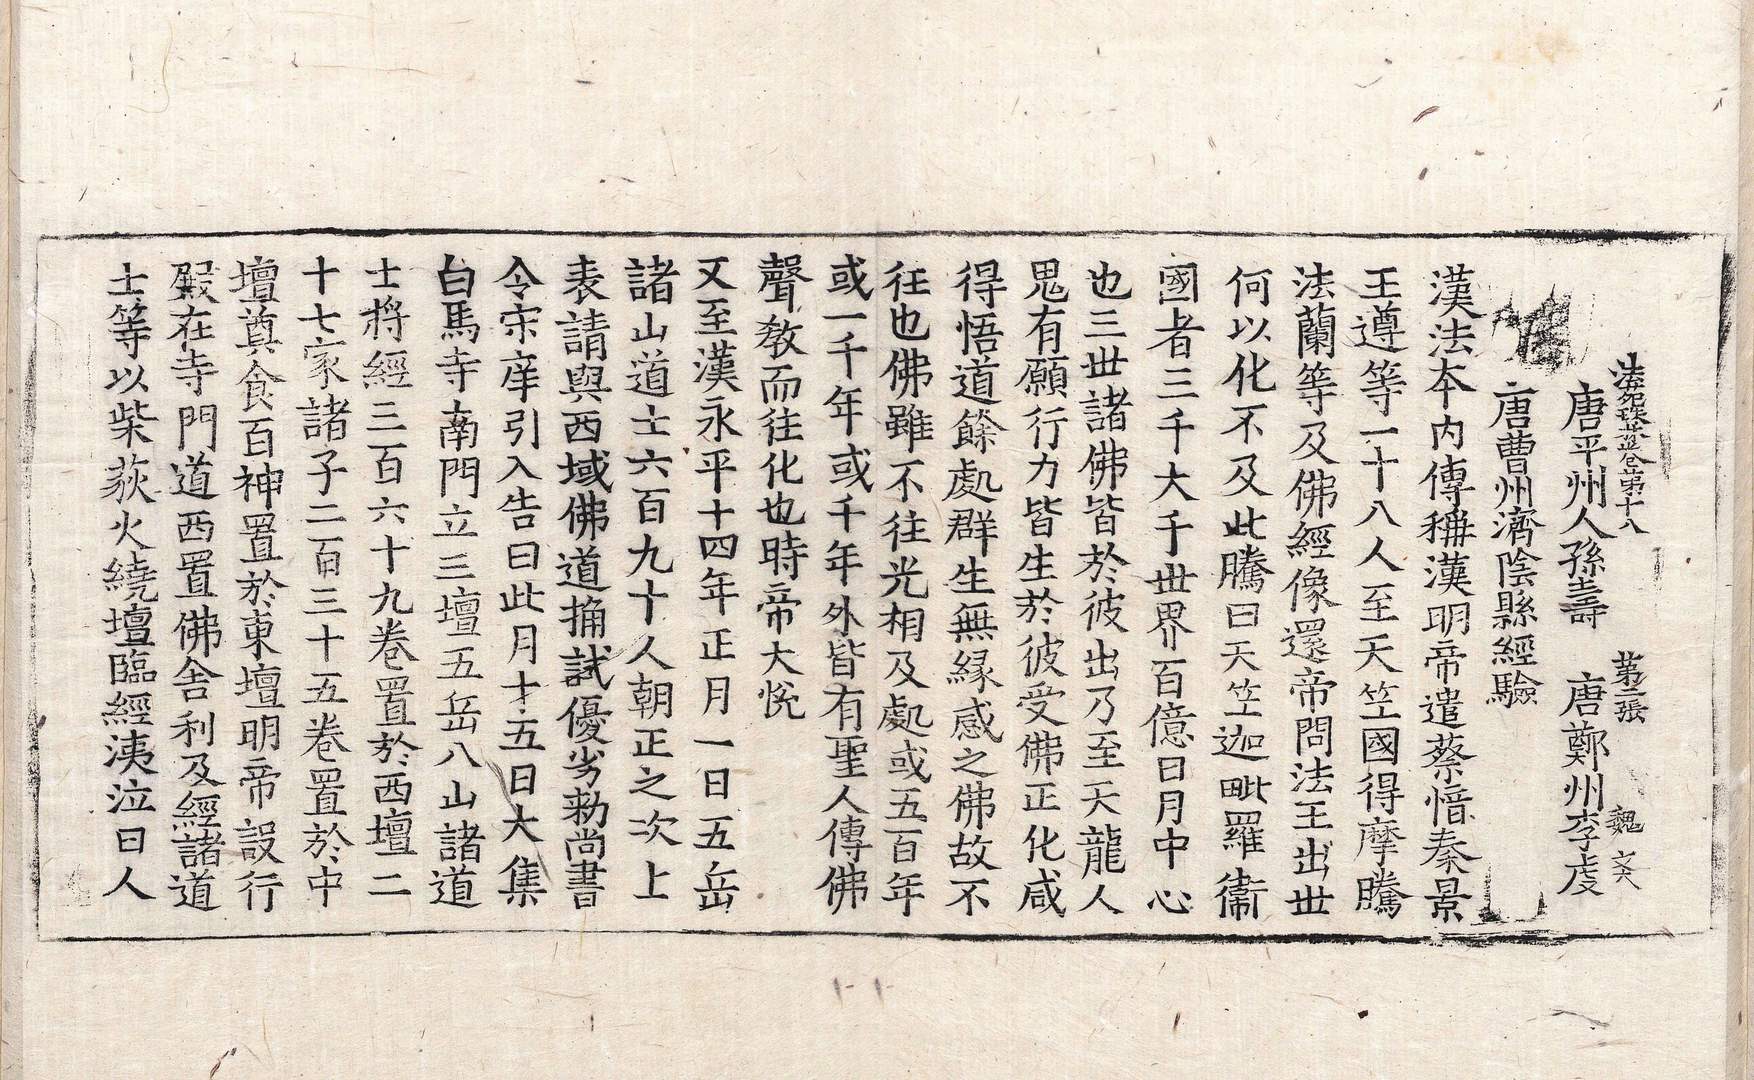 法苑珠林卷第十八　第二張　魏　文
唐平州人孫壽　唐鄭州李虔
唐曹州濟陰縣經驗
漢法本內傳稱漢明帝遣蔡愔秦景
王遵等一十八人至天竺國得摩騰
法蘭等及佛經像還帝問法王出世
何以化不及此騰曰天竺迦毗羅衞
國者三千大千世界百億日月中心
也三世諸佛皆於彼出乃至天龍人
鬼有願行力皆生於彼受佛正化咸
得悟道餘處群生無緣感之佛故不
往也佛雖不往光相及處或五百年
或一千年或千年外皆有聖人傳佛
聲教而往化也時帝大悅
又至漢永平十四年正月一日五岳
諸山道士六百九十人朝正之次上
表請與西域佛道捔試優劣勑尚書
令宋庠引入告曰此月十五日大集
白馬寺南門立三壇五岳八山諸道
士將經三百六十九卷置於西壇二
十七家諸子二百三十五卷置於中
壇奠食百神置於東壇明帝設行
殿在寺門道西置佛舍利及經諸道
士等以柴荻火繞壇臨經洟泣曰人